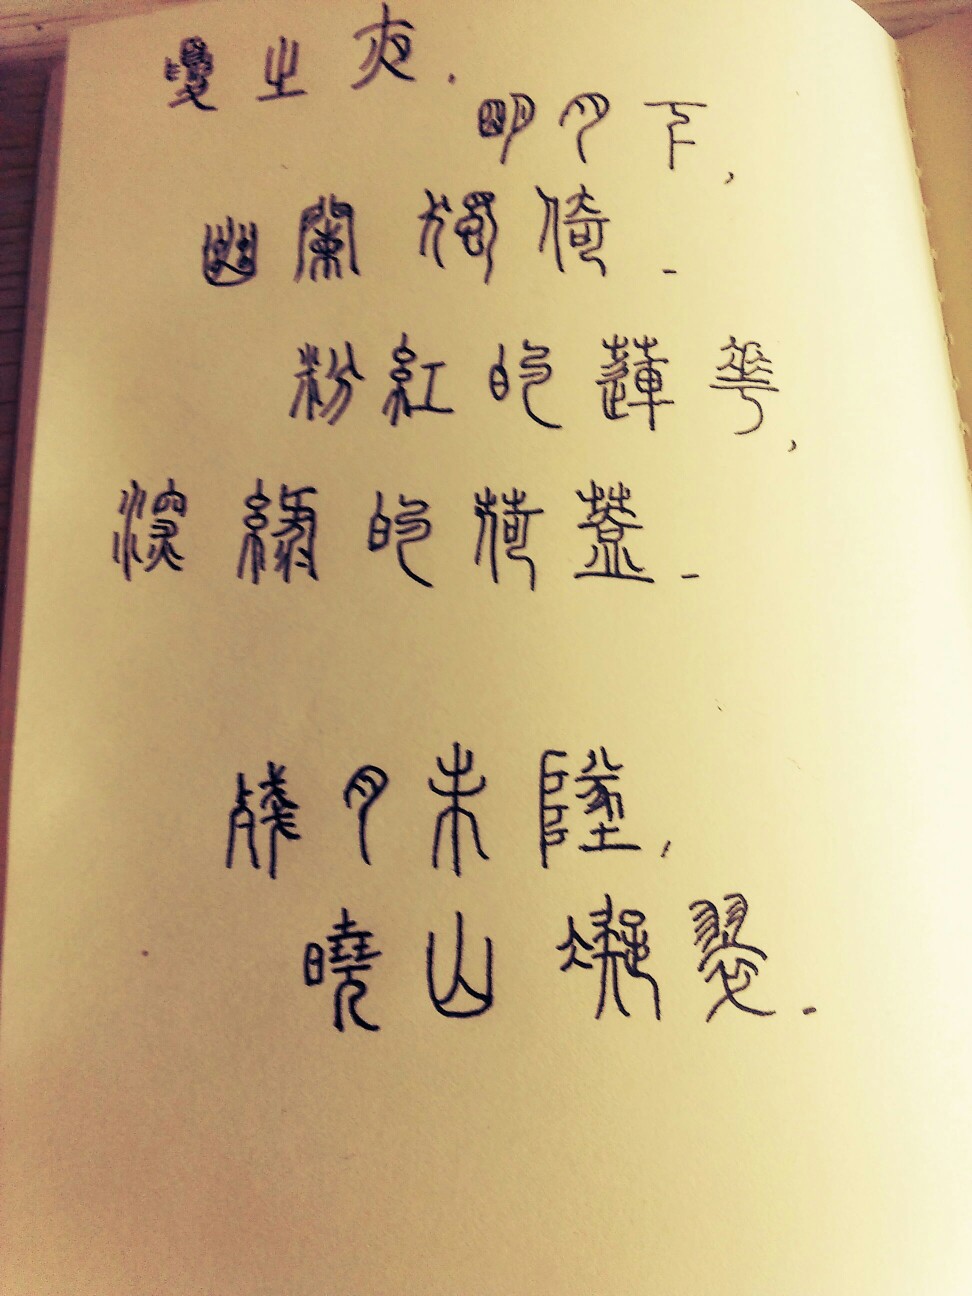 夏之夜.
明月下,
幽蘭獨倚.
粉紅的蓮華,
深綠的荷蓋.
殘月未墜,
曉山凝翠.